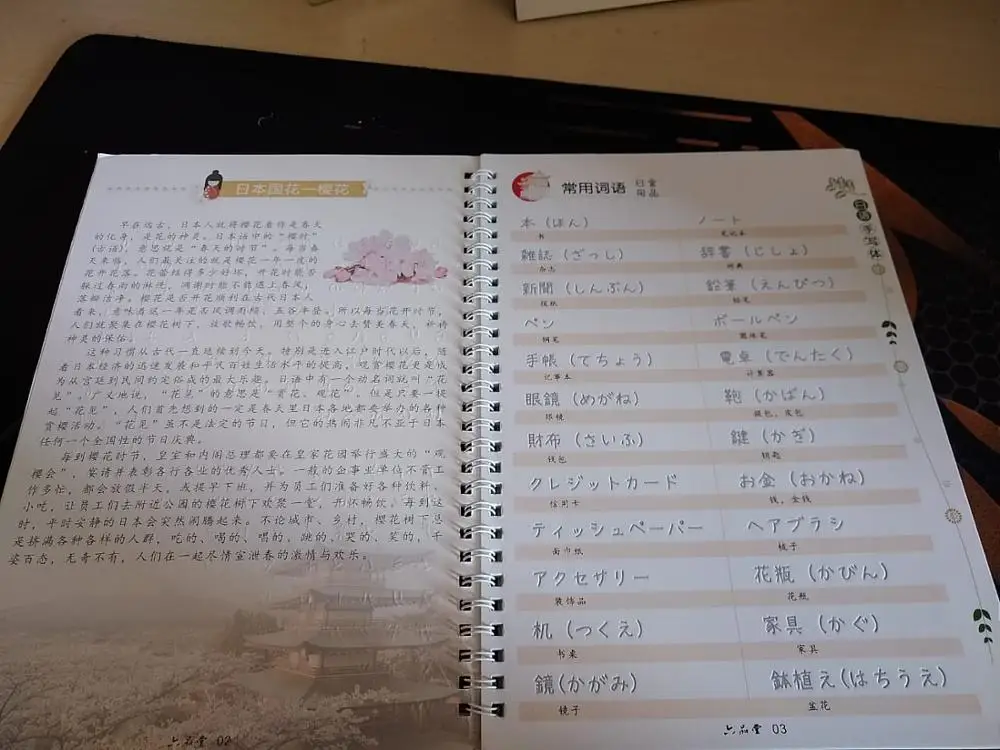 日本国花一樱花
早在远古，日本人就将樱花看作是春天
的化身，是花的神灵。日本话中的“樱时”
（古语），意思就是“春天的时节”。每当春
天来临，人们最关注的就是樱花一年一度的
花开花落。花蕾结得多少好坏，开花时能否
躲过春雨的淋洗，凋谢时能不能遇上春风，
落细洁净。樱花是否开花顺利在古代日本人
看来，意味着这一年是否风调雨顺，五谷丰登。所以每当花开时节，
人们就聚集在樱花树下，放歌畅饮，用整个的身心去赞美春天，祈祷
神灵的保佑。
这种习惯从古代一直延续到今天。特别是进入江户时代以后，随
着日本经济的迅速发展和平民百姓生活水平的提高，观赏樱花更是成
为从宫廷到民间约定俗成的最大乐趣。日语中有一个动名词就叫“花
见”。广义地说，“花见”的意思是“赏花、观花”，但是只要一提
起“花见”，人们首先想到的一定是春天里日本各地都要举办的各种
赏樱活动。“花见”虽不是法定的节日，但它的热闹非凡不亚于日本
任何一个全国性的节日庆典。
每到樱花时节，皇室和内阁总理都要在皇家花园举行盛大的“观
樱会”，宴请并表彰各行各业的优秀人士。一般的企事业单位不管工
作多忙，都会放假半天，或提早下班，并为员工们准备好各种饮料、
小吃，让员工们去附近公园的樱花树下欢聚一堂，开怀畅饮。每到这
时，平时安静的日本会突然闹腾起来。不论城市、乡村，樱花树下总
是挤满各种各样的人群，吃的、喝的、唱的、跳的、哭的、笑的，千
姿百态，无奇不有，人们在一起尽情宣泄春的激情与欢乐。
六品堂 02
常用词语 日常用品
日语手写体
本（ほん） ノート
书 笔记本
雑誌（ざっし） 辞書（じしょ）
杂志 词典
新聞（しんぶん） 鉛筆（えんぴつ）
报纸 铅笔
ペン ボールペン
钢笔 圆珠笔
手帳（てちょう） 電卓（でんたく）
记事本 计算器
眼鏡（めがね） 鞄（かばん）
眼镜 提包，皮包
財布（さいふ） 鍵（かぎ）
钱包 钥匙
クレジットカード お金（おかね）
信用卡 钱，金钱
ティッシュペーパー ヘアブラシ
面巾纸 梳子
アクセサリー 花瓶（かびん）
装饰品 花瓶
机（つくえ） 家具（かぐ）
书桌 家具
鏡（かがみ） 鉢植え（はちうえ）
镜子 盆花
六品堂 03